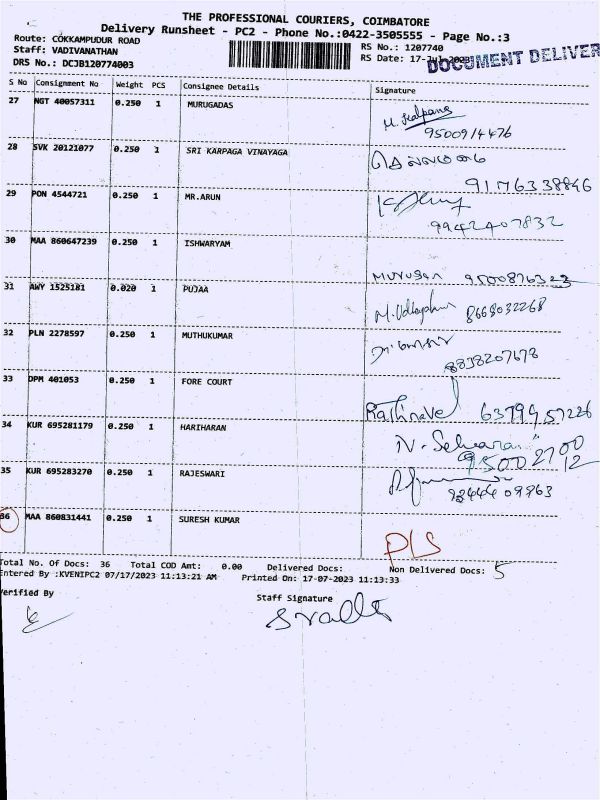 THE PROFESSIONAL COURIERS, COIMBATORE
Delivery Runsheet - PC2 - Phone No.:0422-3505555 - Page No.:3
Route: COKKAMPUDUR ROAD
Staff: VADIVANATHAN
DRS No.: DCJB120774003
RS No.: 1207740
RS Date: 17-Jul-2023
DOCUMENT DELIVER
S No Consignment No Weight PCS Consignee Details Signature
27 NGT 40057311 0.250 1 MURUGADAS M. Kalpana
9500914476
28 SVK 20121077 0.250 1 SRI KARPAGA VINAYAGA
9176338846
29 PON 4544721 0.250 1 MR.ARUN
9942407832
30 MAA 860647239 0.250 1 ISHWARYAM
Murugan 9500876323
31 AWY 1525181 0.020 1 PUJAA
8668032268
32 PLN 2278597 0.250 1 MUTHUKUMAR
8838207678
33 DPM 401053 0.250 1 FORE COURT
Rathinavel 6379957226
34 KUR 695281179 0.250 1 HARIHARAN
95002700
12
35 KUR 695283270 0.250 1 RAJESWARI
36 MAA 860831441 0.250 1 SURESH KUMAR
PLS
Total No. Of Docs: 36 Total COD Amt: 0.00 Delivered Docs: Non Delivered Docs: 5
Entered By :KVENIPC2 07/17/2023 11:13:21 AM Printed On: 17-07-2023 11:13:33
Verified By
Staff Signature